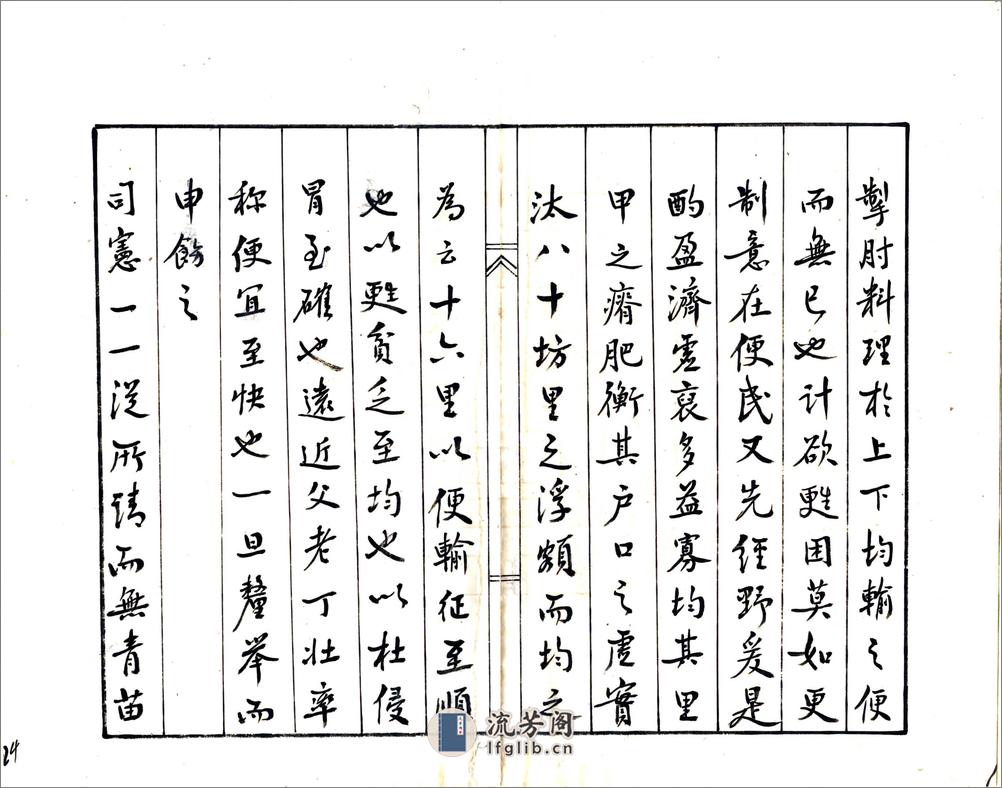 掣肘料理於上下均輸之便
而無已也計欲甦困莫如更
制意在便民又先經野爰是
酌盈濟虛裒多益寡均其里
甲之瘠肥衡其户口之虛實
汰八十坊里之浮額而均之
為云十六里以便輸征至順
也以甦貧乏至均也以杜侵
冒至確也遠近父老丁壯率
称便宜至快也一旦釐舉而
申飭之
司憲一一從所請而無青苗
24
流芳阁
lfglib.cn